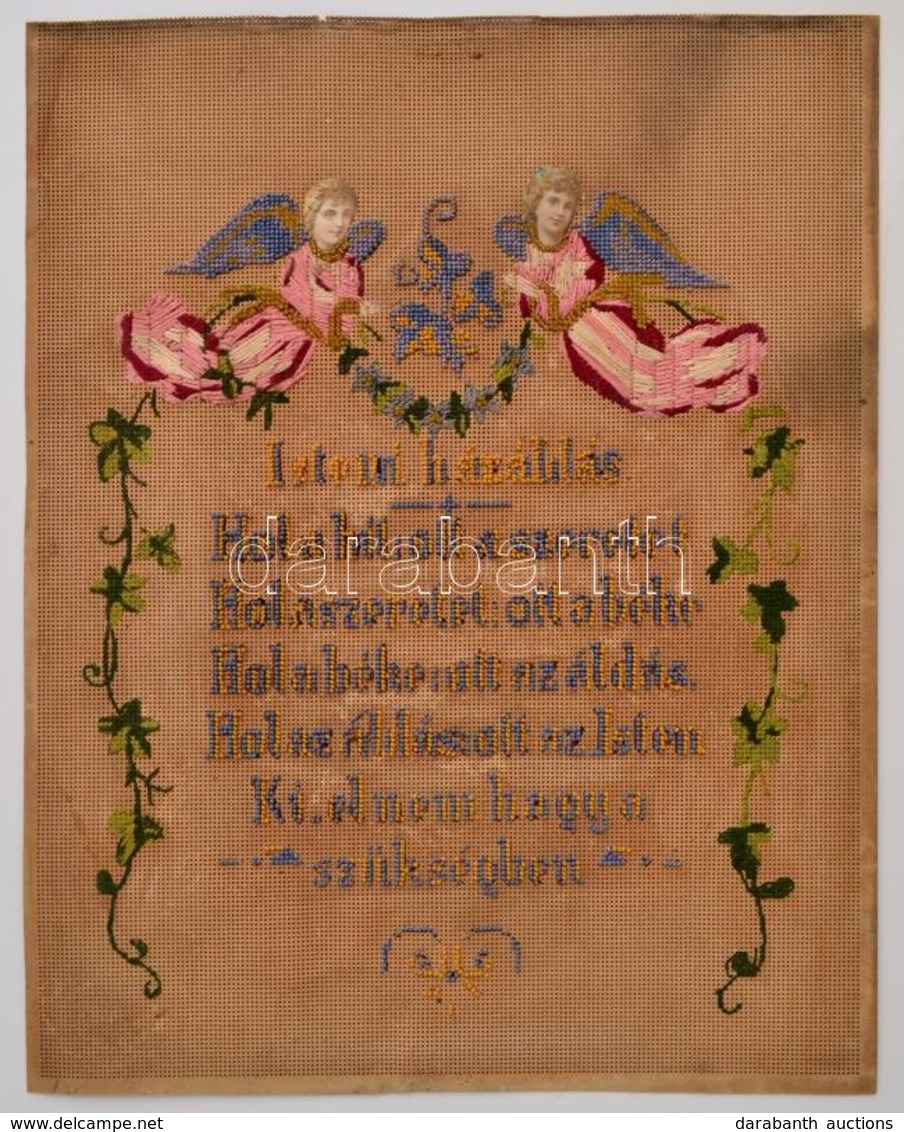 Isteni házáldás.
Hol a hit: ott a szeretet
Hol a szeretet: ott a béke
Hol a béke: ott az áldás.
Hol az Áldás: ott az Isten
Ki el nem hagy a
szükségben
darabanth
www.delcampe.net
darabanth auctions